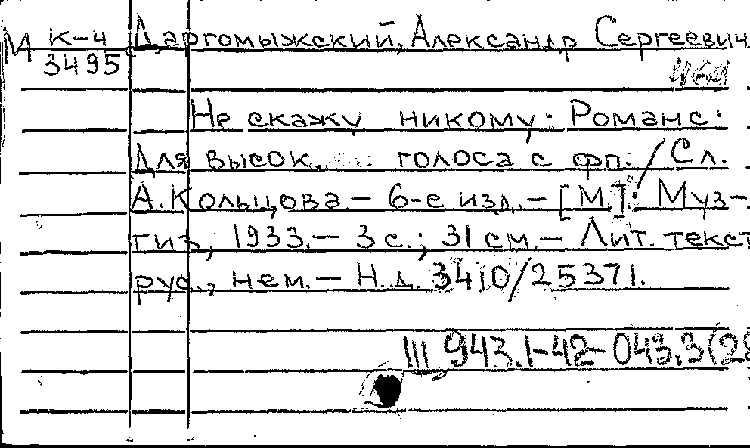 М К-4 Даргомыжский, Александр Сергеевич
3495
Не скажу никому: Романс:
Для высок. голоса с фп. / Сл.
А. Кольцова. - 6-е изд. - [М.]: Муз-
гиз, 1933. - 3 с.; 31 см. - Лит. текст
рус., нем. - Н.д. 3410/25371.
Ш 943.1-42-043.3(28